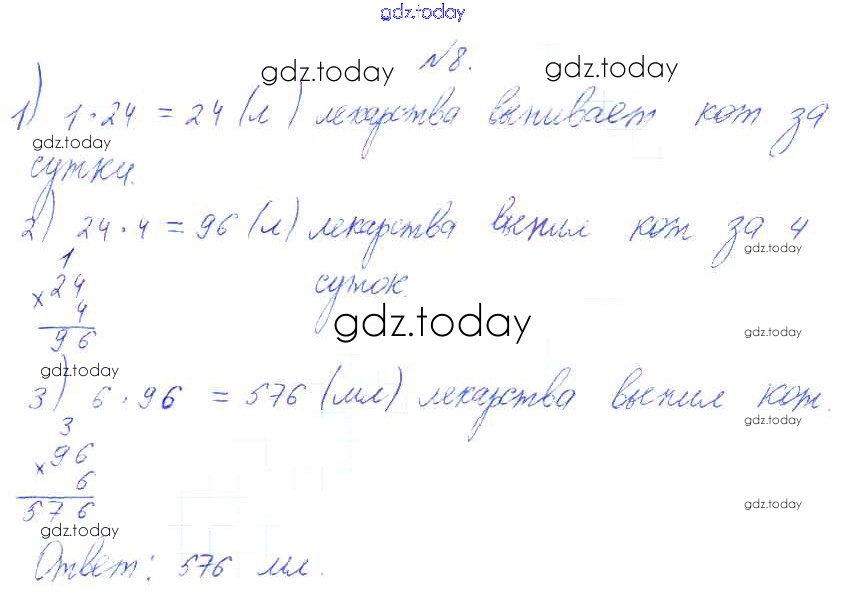 gdz.today
№8.
gdz.today gdz.today
1) 1·24 = 24 (л) лекарства выпивает кот за
gdz.today
сутки.
2) 24·4 = 96 (л) лекарства выпил кот за 4
gdz.today
1
×24 суток.
4
gdz.today gdz.today
96
gdz.today
3) 6·96 = 576 (мл) лекарства выпил кот.
gdz.today
3
×96
6
576 gdz.today
gdz.today
Ответ: 576 мл.